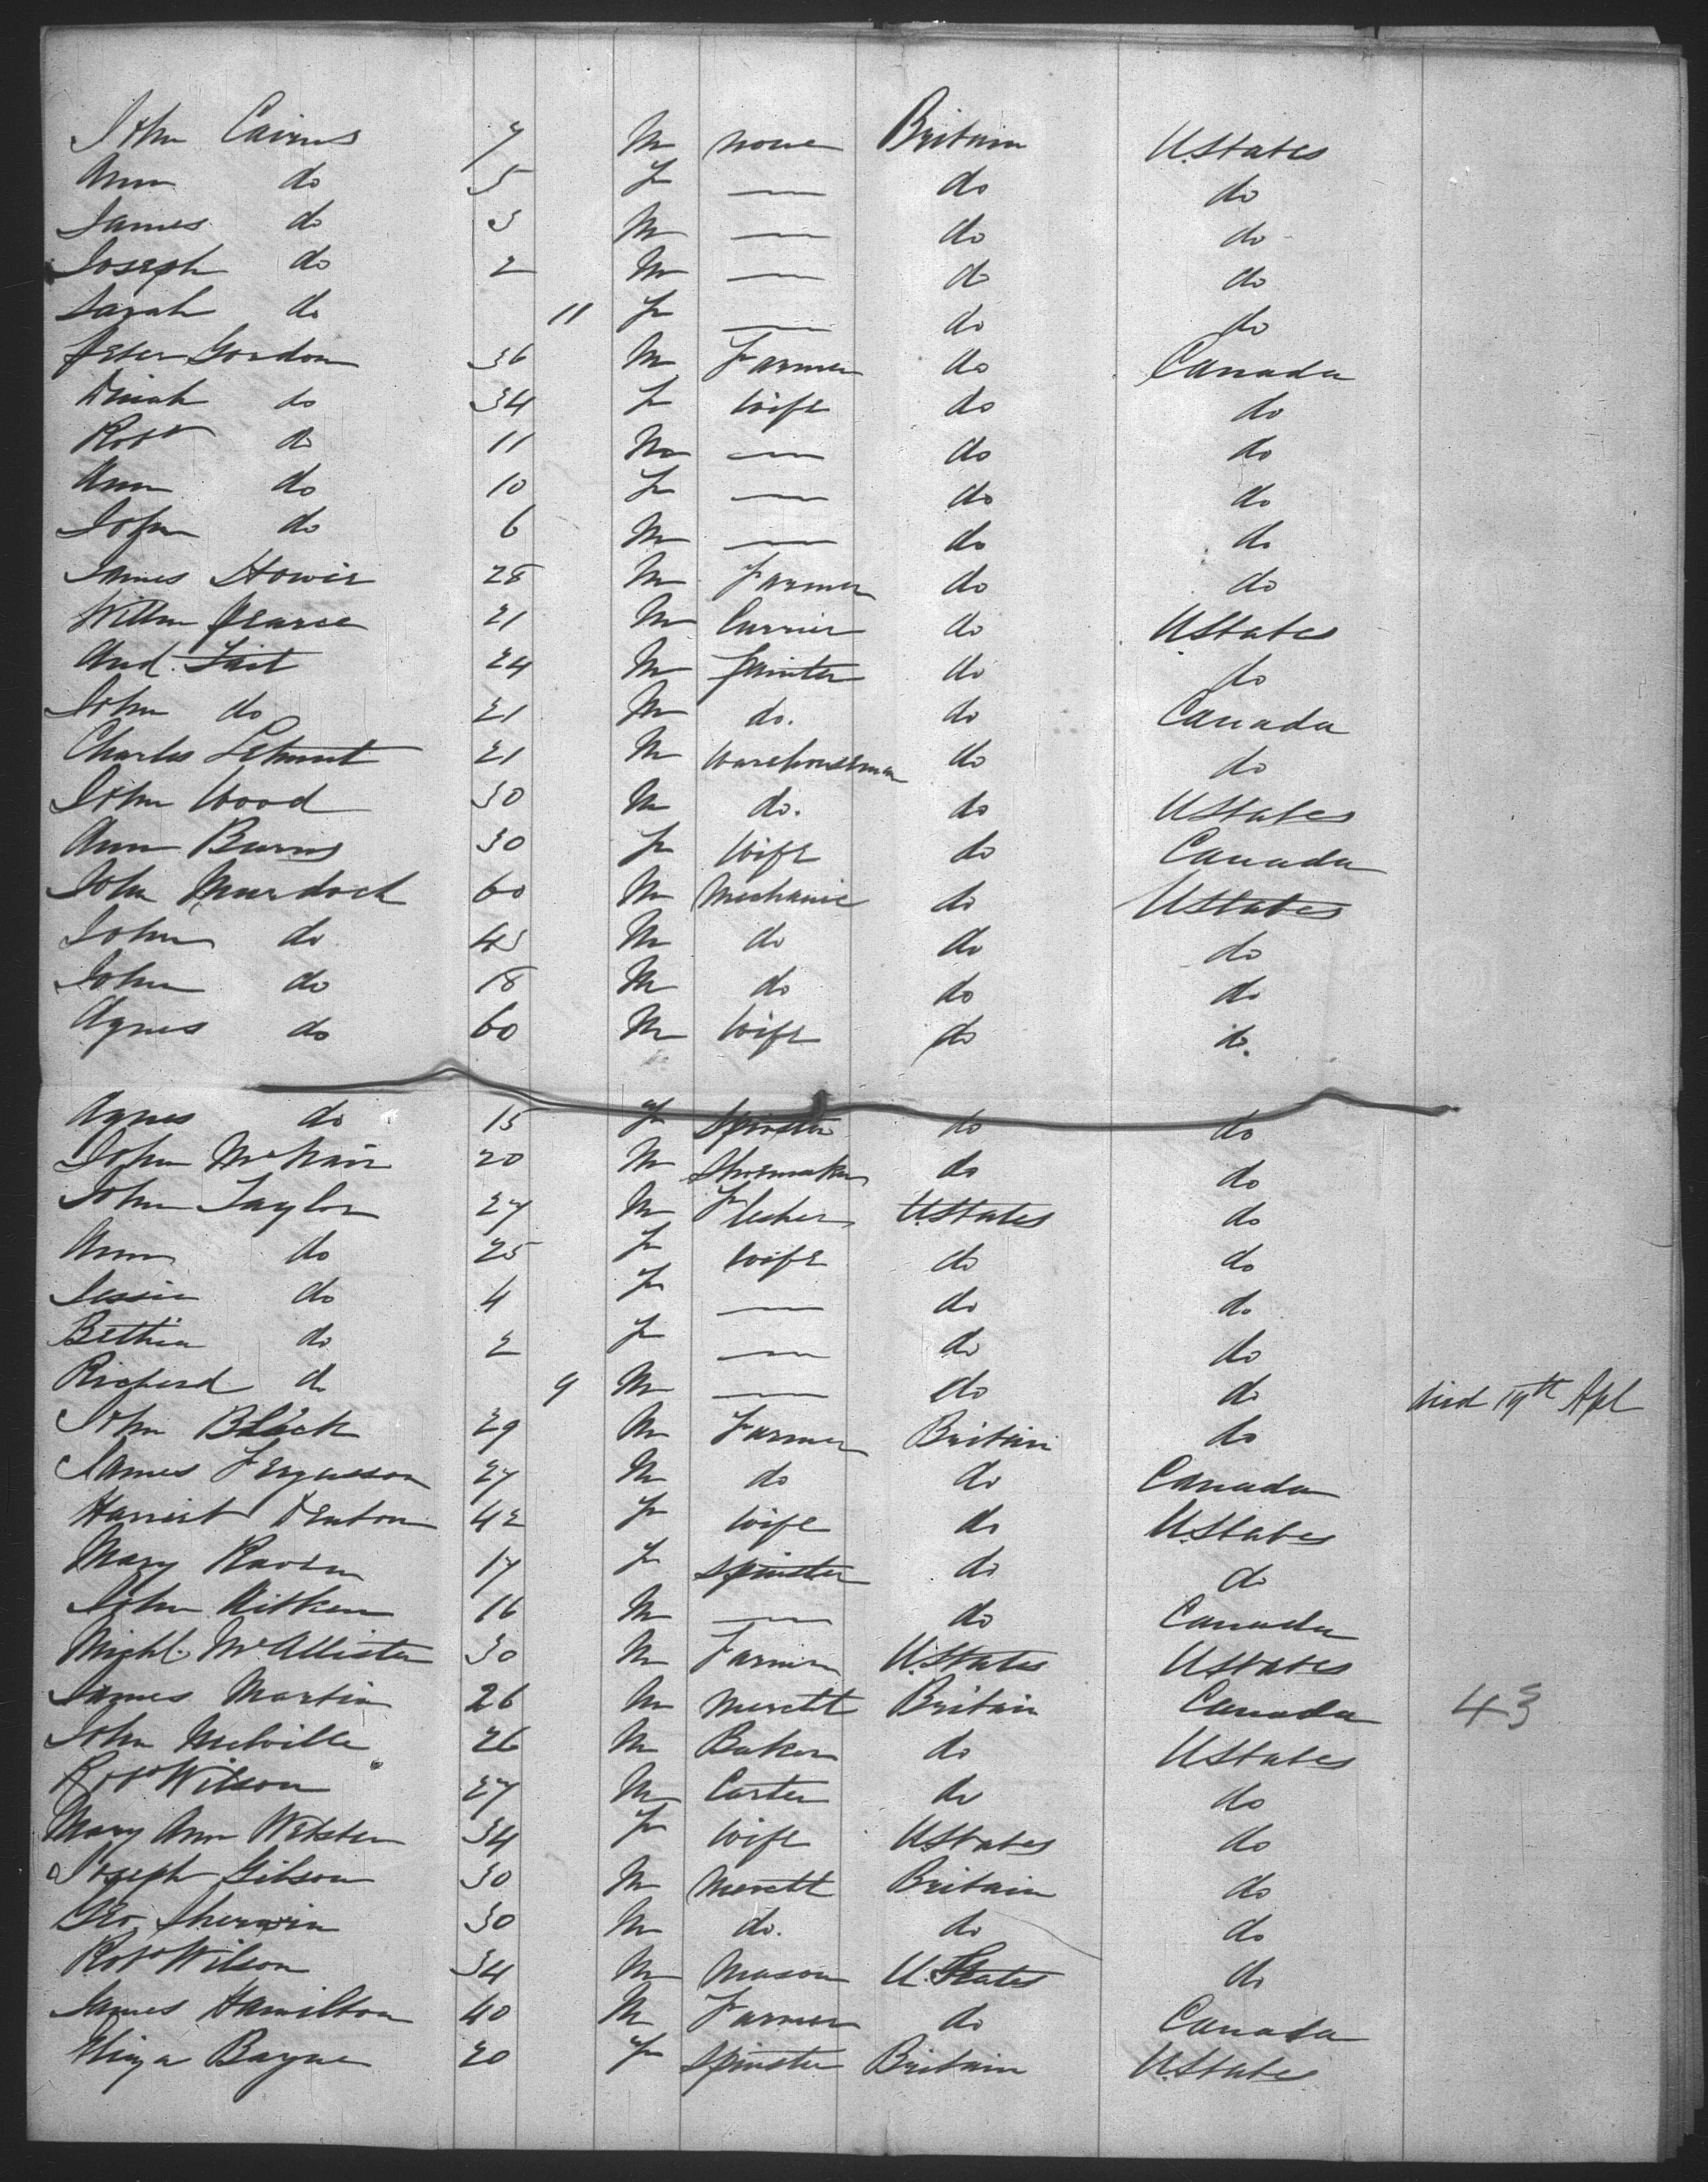 John Cairns 7 M none Britain U.States
Ann do 5 F — do do
James do 3 M — do do
Joseph do 2 M — do do
Sarah do 11 F — do do
Peter Gordon 36 M Farmer do Canada
Dinah do 34 F Wife do do
Robt do 11 M — do do
Ann do 10 F — do do
John do 6 M — do do
James Howie 28 M Farmer do do
Willm Pearce 21 M Currier do UStates
And. Tait 24 M Painter do do
John do 21 M do. do Canada
Charles 21 M Warehouseman do do
John Wood 30 M do. do UStates
Ann Burns 30 F Wife do Canada
John Murdoch 60 M Mechanic do UStates
John do 43 M do do do
John do 18 M do do do
Agnes do 60 M Wife do do.
Agnes do 15 F Spinster do do
John McNair 20 M Shoemaker do do
John Taylor 27 M Flesher UStates do
Ann do 25 F Wife do do
Jessie do 4 F — do do
Bethia do 2 F — do do
Richard do 9 M — do do died 19th Apl
John Black 29 M Farmer Britain do
James Fergusson 27 M do do Canada
Harriet Denton 42 F Wife do U.States
Mary Raven 17 F Spinster do do
John Aitken 16 M — do Canada
Michl. McAllister 30 M Farmer U.States UStates
James Martin 26 M Mercht Britain Canada 43
John Melville 26 M Baker do UStates
Robt Wilson 27 M Carter do do
Mary Ann Webster 34 F Wife UStates do
Joseph Gibson 30 M Mercht Britain do
Geo. Sherwin 30 M do. do do
Robt Wilson 34 M Mason U.States do
James Hamilton 40 M Farmer do Canada
Bayne 20 F Spinster Britain U.States